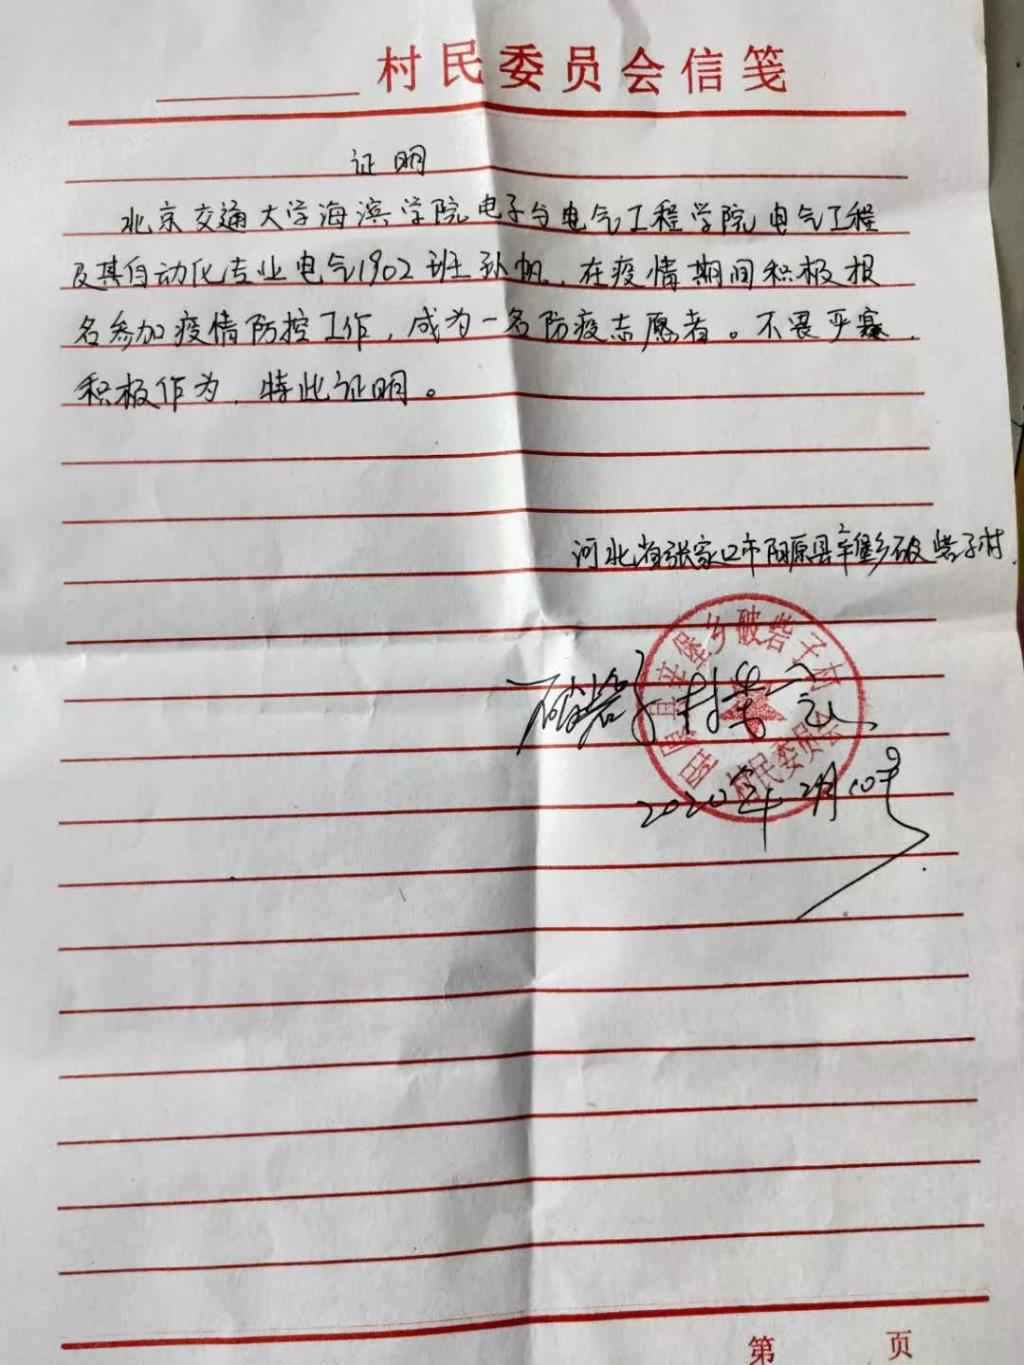 村民委员会信笺
证明
北京交通大学海滨学院电子与电气工程学院电气工程
及其自动化专业电气1902班孙帆,在疫情期间积极报
名参加疫情防控工作,成为一名防疫志愿者。不畏严寒,
积极作为,特此证明。
河北省张家口市阳原县辛堡乡破砦子村
阳原县辛堡乡破砦子村
村民委员会
村委会
2020年2月10号
第 页